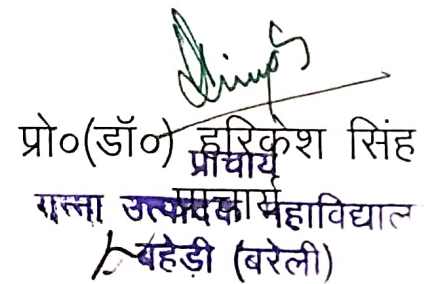 प्रो०(डॉ०) हरिकेश सिंह
प्राचार्य
प्राचार्य
गन्ना उत्पादक महाविद्याल
बहेड़ी (बरेली)